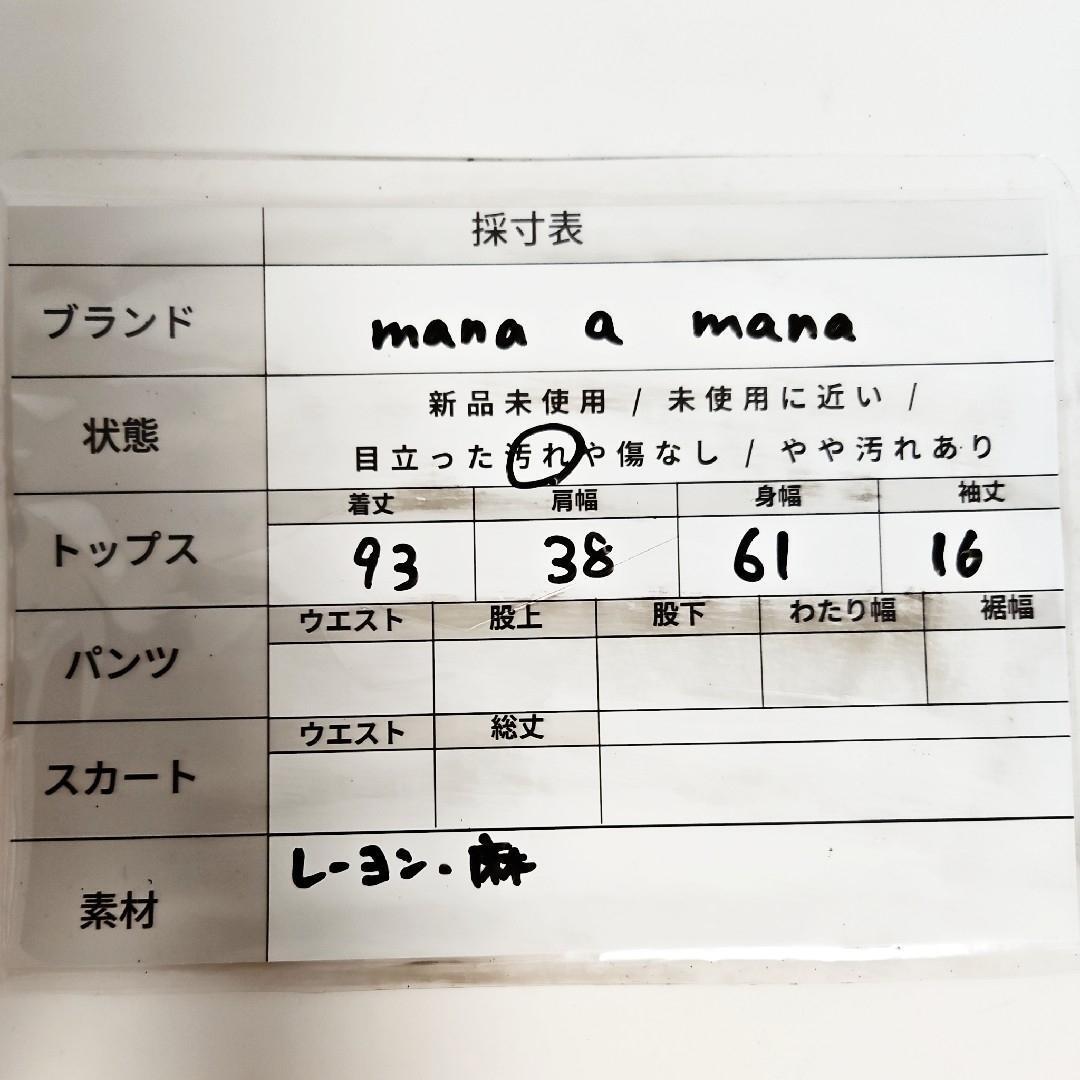 採寸表
ブランド mana a mana
状態 新品未使用 / 未使用に近い /
目立った汚れや傷なし / やや汚れあり
着丈 肩幅 身幅 袖丈
トップス 93 38 61 16
ウエスト 股上 股下 わたり幅 裾幅
パンツ
ウエスト 総丈
スカート
レーヨン・麻
素材